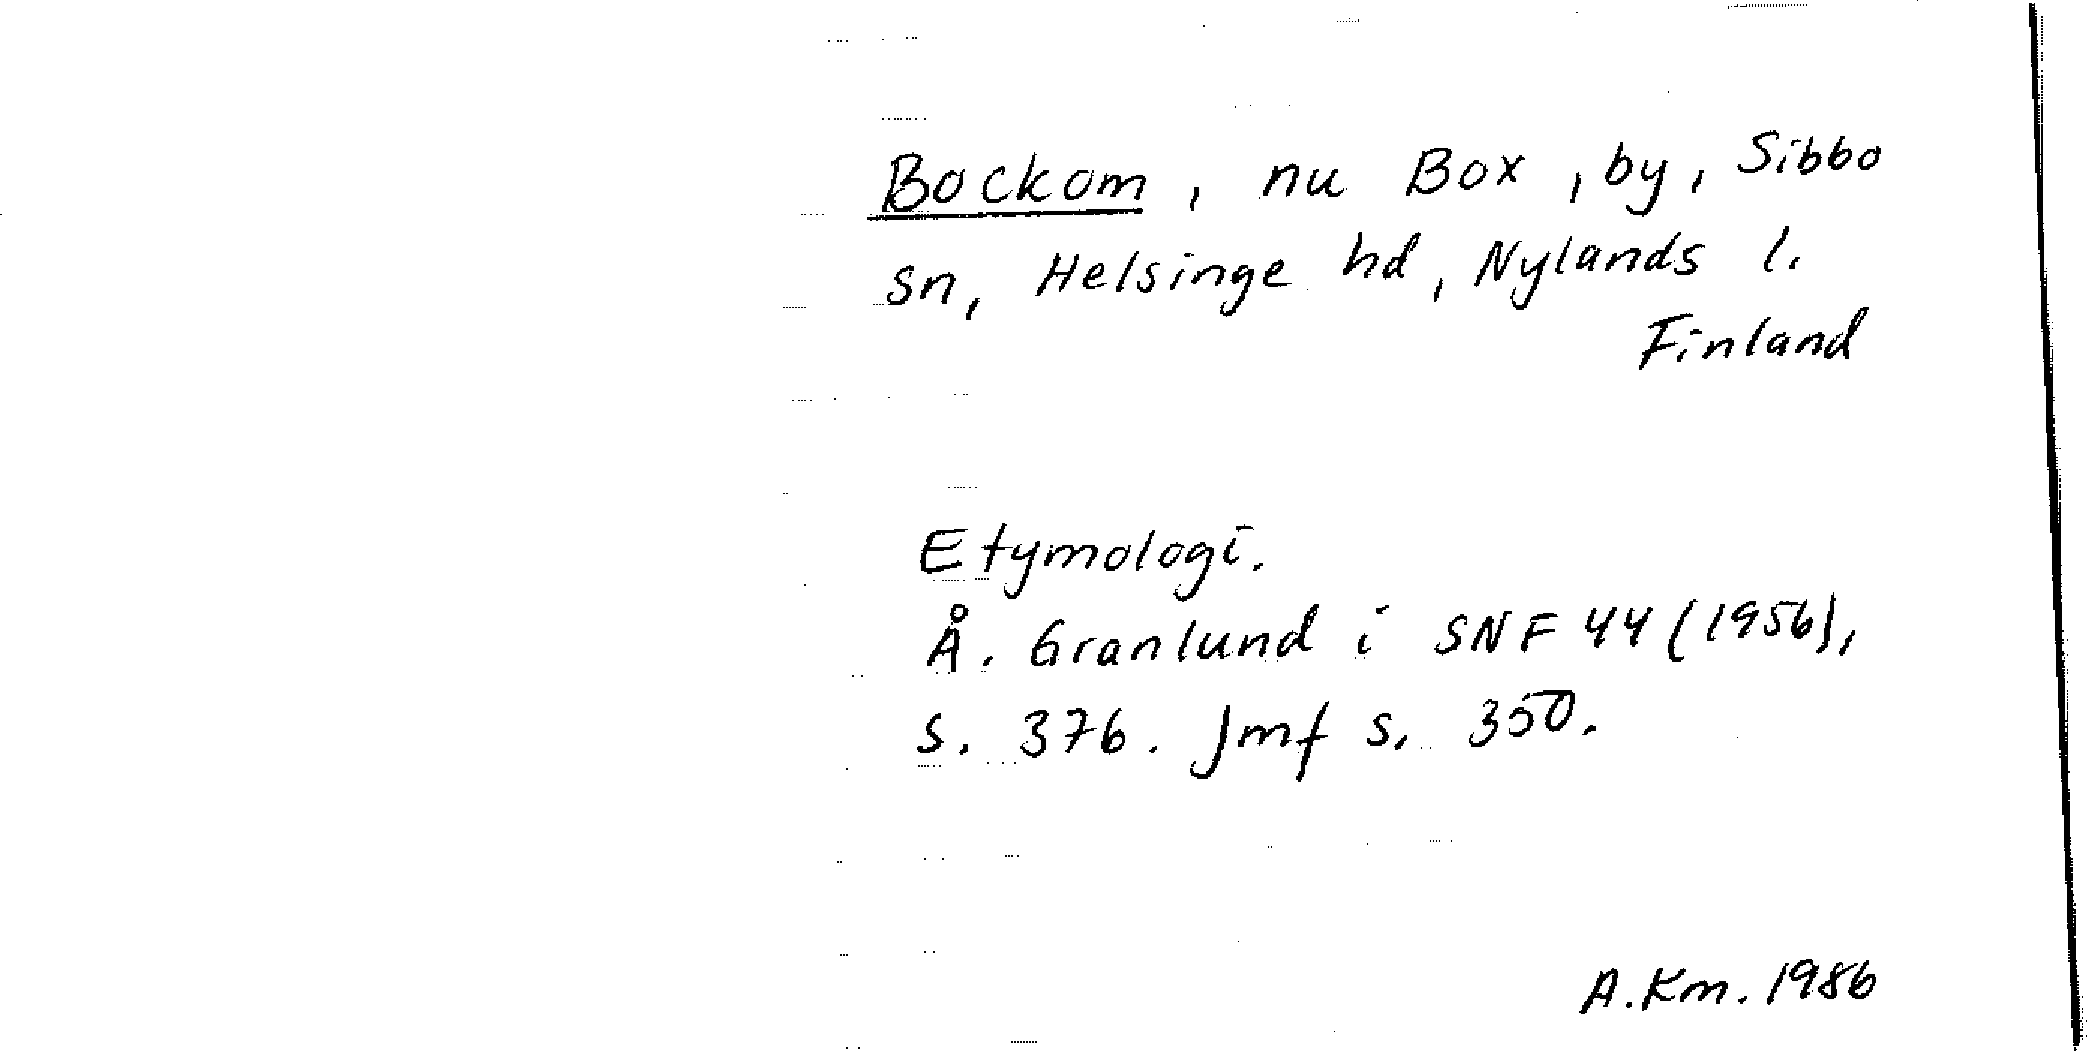 Bockom, nu Box, by, Sibbo
sn, Helsinge hd, Nylands l.
Finland
Etymologi.
Å. Granlund i SNF 44 (1956),
s. 376. Jmf s. 350.
A.Km. 1986